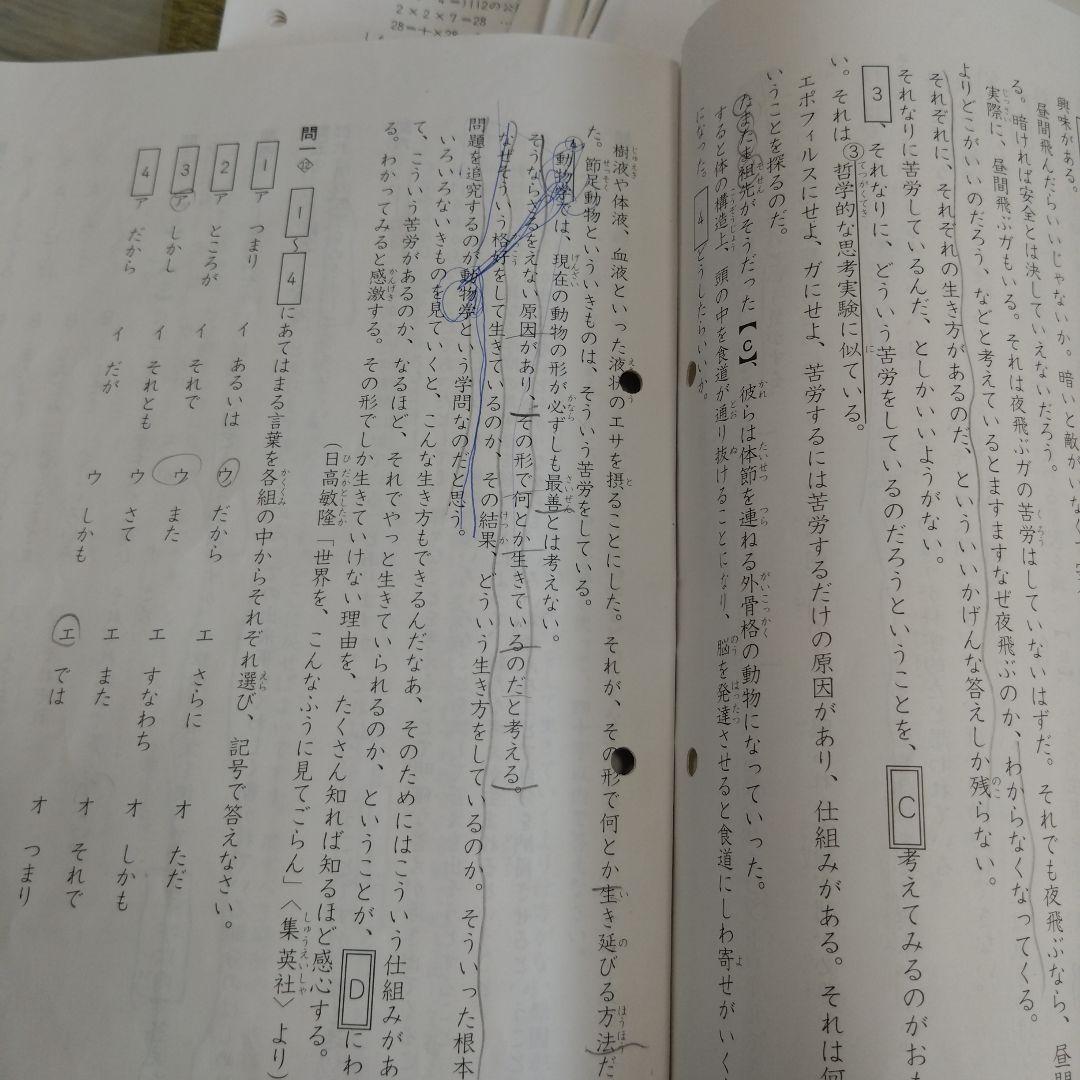 興味がある。
昼間飛んだらいいじゃないか。暗いと敵がいな
る。暗ければ安全とは決していえないだろう。
実際に、昼間飛ぶガもいる。それは夜飛ぶガの苦労はしていないはずだ。それでも夜飛ぶなら、昼
よりどこがいいのだろう、などと考えているとますますなぜ夜飛ぶのか、わからなくなってくる。
それぞれに、それぞれの生き方があるのだ、といういいかげんな答えしか残らない。
それなりに苦労しているんだ、としかいいようがない。
3、それなりに、どういう苦労をしているのだろうということを、C考えてみるのがおも
い。それは③哲学的な思考実験に似ている。
エポフィルスにせよ、ガにせよ、苦労するには苦労するだけの原因があり、仕組みがある。それは何
いうことを探るのだ。
たまたま祖先がそうだった【C】、彼らは体節を連ねる外骨格の動物になっていった。
すると体の構造上、頭の中を食道が通り抜けることになり、脳を発達させると食道にしわ寄せがいく
になった。4どうしたらいいか。
樹液や体液、血液といった液状のエサを摂ることにした。それが、その形で何とか生き延びる方法だ
た。節足動物といういきものは、そういう苦労をしている。
④動物学では、現在の動物の形が必ずしも最善とは考えない。
そうならざるをえない原因があり、その形で何とか生きているのだと考える。
なぜそういう格好をして生きているのか、その結果、どういう生き方をしているのか。そういった根本
問題を追究するのが動物学という学問なのだと思う。
いろいろないきものを見ていくと、こんな生き方もできるんだなあ、そのためにはこういう仕組みがあ
て、こういう苦労があるのか、なるほど、それでやっと生きていられるのか、ということが、Dにわ
る。わかってみると感激する。その形でしか生きていけない理由を、たくさん知れば知るほど感心する。
（日高敏隆「世界を、こんなふうに見てごらん」〈集英社〉より）
問一⑫ 1〜4にあてはまる言葉を各組の中からそれぞれ選び、記号で答えなさい。
1 ア つまり イ あるいは ウ だから エ さらに オ ただ
2 ア ところが イ それで ウ また エ すなわち オ しかも
3 ア しかし イ それとも ウ さて エ また オ それで
4 ア だから イ だが ウ しかも エ では オ つまり
2×2×7=28